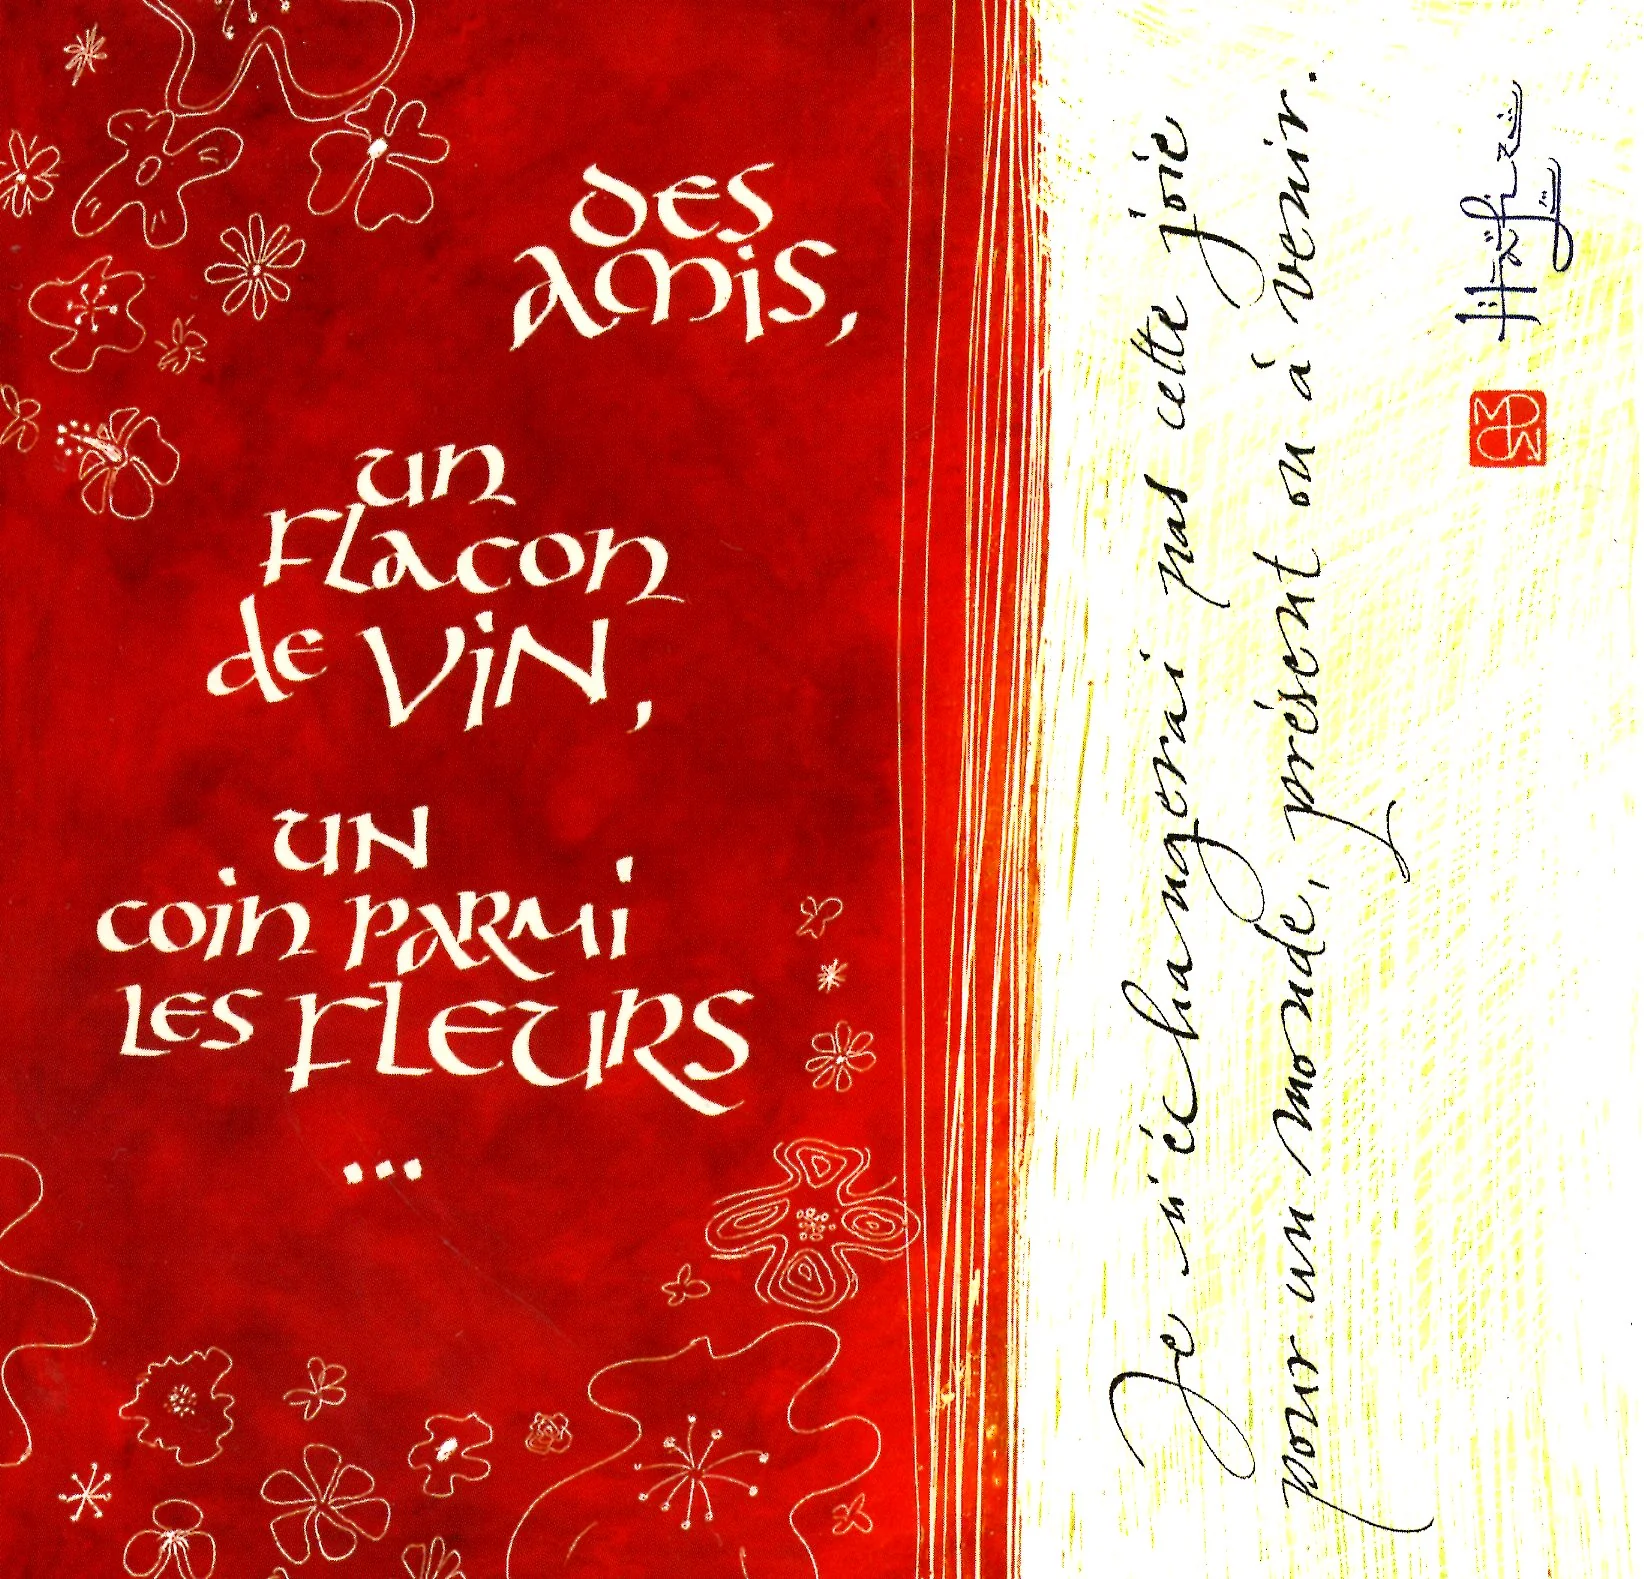 des
amis,
un
flacon
de vin,
un
coin parmi
les fleurs
...
Je n'échangerai pas cette joie
pour un monde, présent ou à venir.